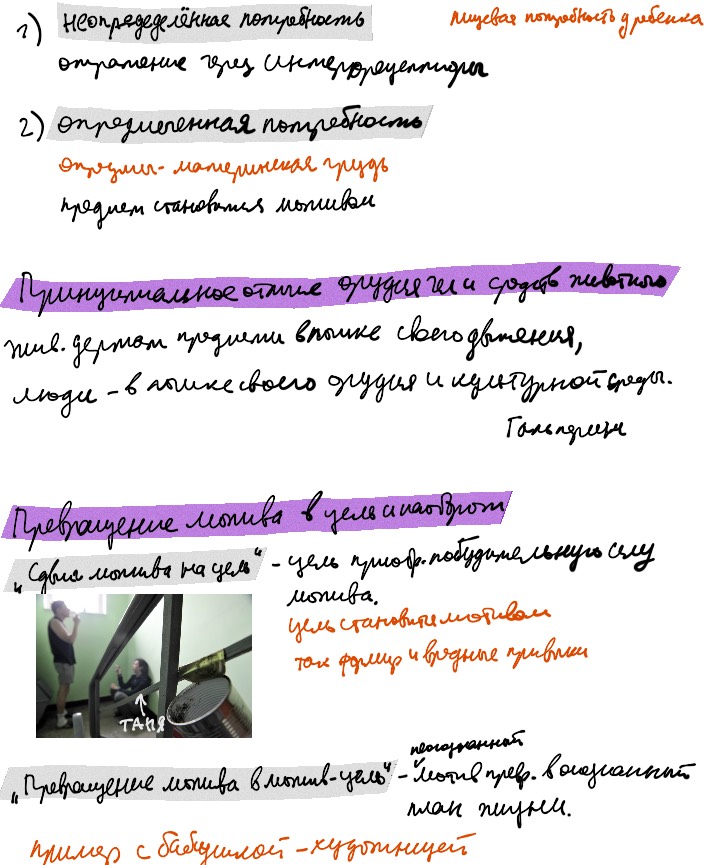 1) неопредеделённая потребность
пищевая потребность у ребенка
отражение через интерорецепторы
2) опредмеченная потребность
опредмеч - материнская грудь
предмет становится мотивом
Принципиальное отличие орудия чел и средств животного
жив. держат предметы в логике своего движения,
люди - в логике своего орудия и культурной среды.
Гальперин
Превращение мотива в цель и наоборот
"Сдвиг мотива на цель" - цель приобр. побудительную силу
мотива.
цель становится мотивом
так формир и вредные привычки
ТАНЯ
неосознанный
"Превращение мотива в мотив-цель" - мотив превр. в осознанный
план жизни.
пример с бабушкой - художницей